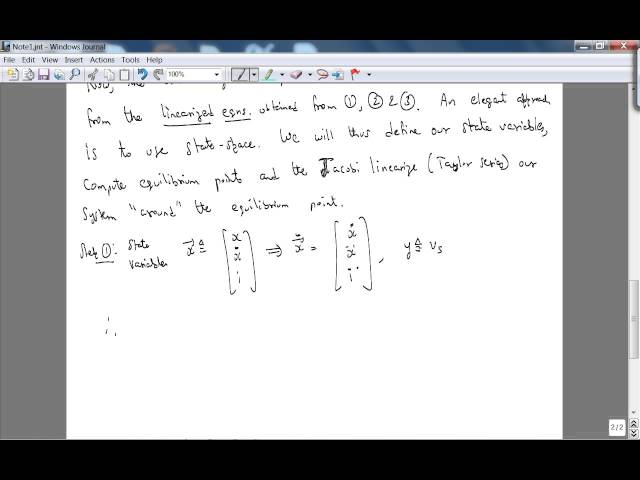 Note1.jnt - Windows Journal
File Edit View Insert Actions Tools Help
100%
from the linearized eqns. obtained from ①, ② & ③. An elegant approach
is to use state-space. We will thus define our state variables,
compute equilibrium point and the Jacobi linearize (Taylor series) our
system "around" the equilibrium point.
Step ①: State variables x⃗ ≜ [x ẋ i] ⇒ ẋ⃗ = [ẋ ẍ i̇], y ≜ vs
∴
2/2